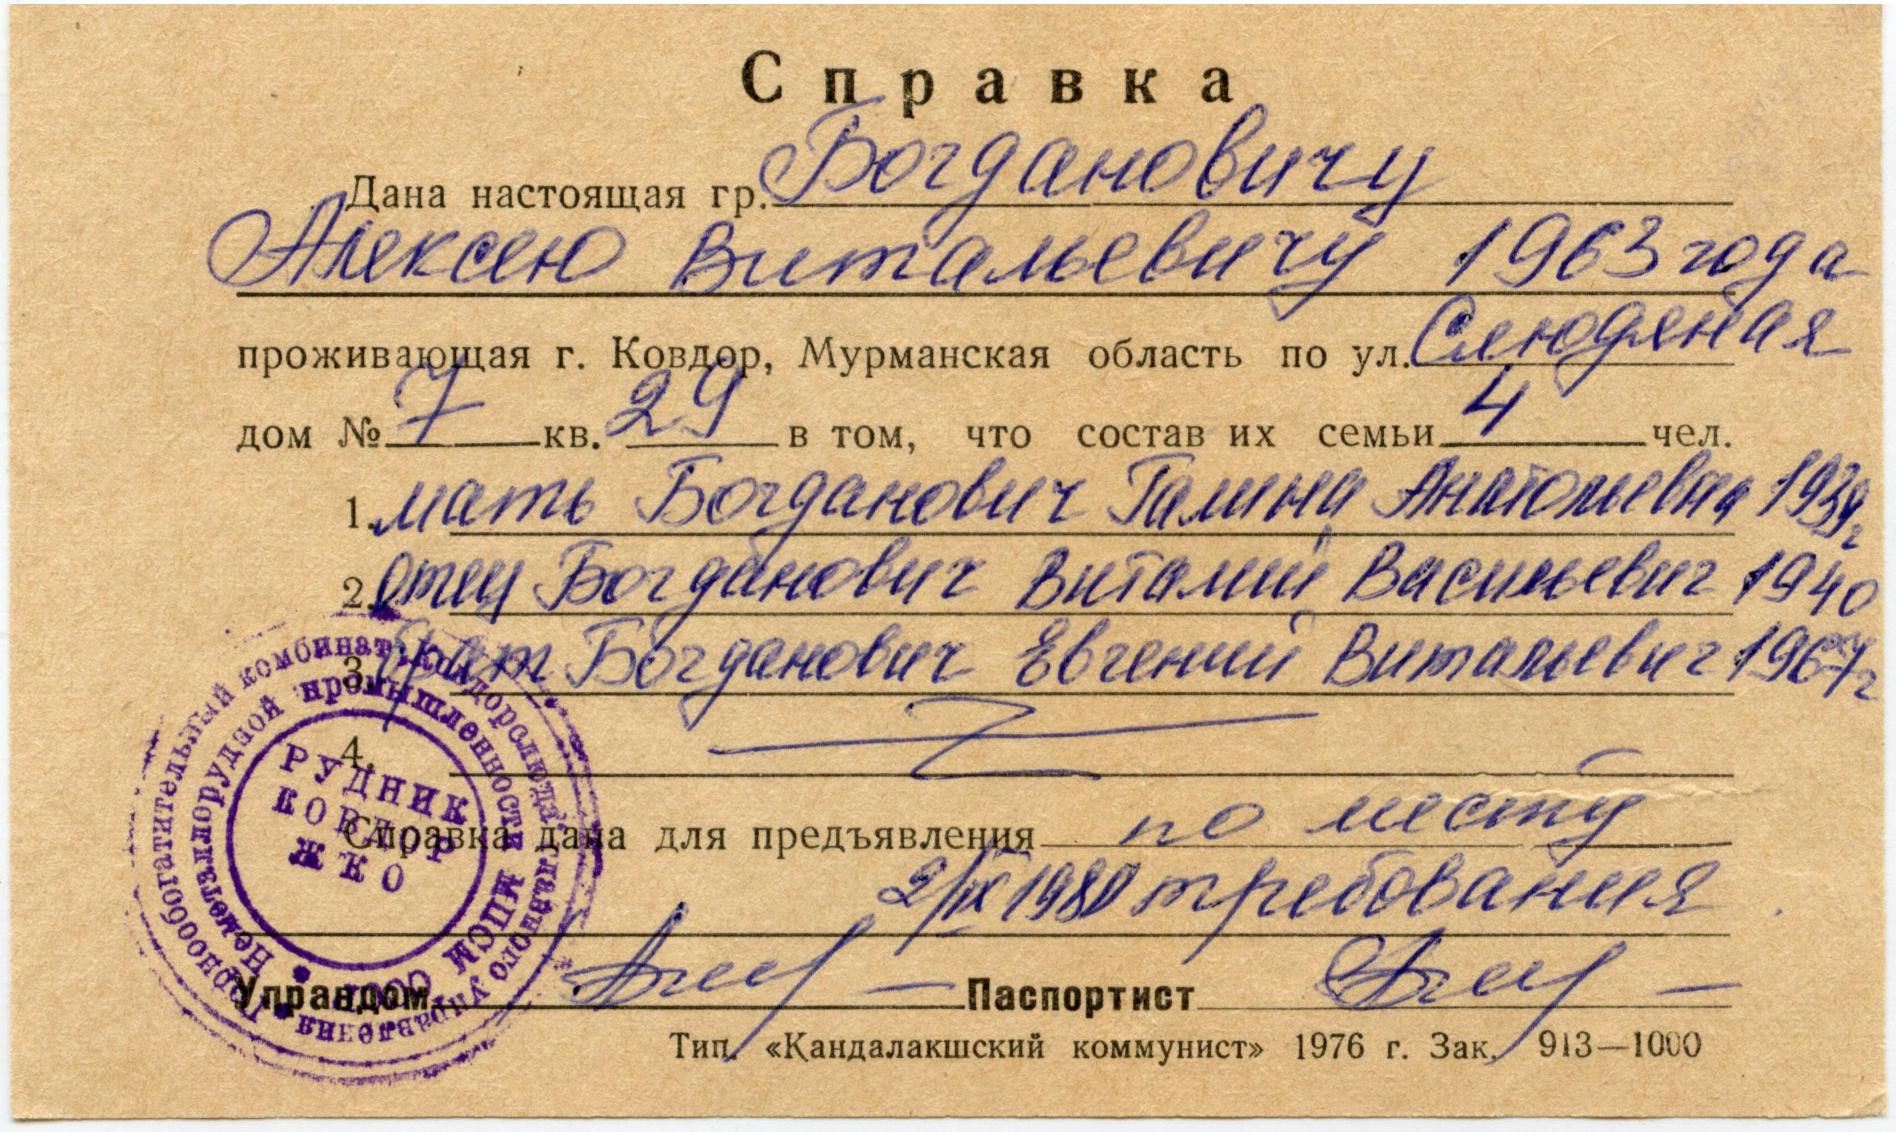 Справка
Дана настоящая гр. Богдановичу
Алексею Витальевичу 1963 года
проживающая г. Ковдор, Мурманская область по ул. Слюдяная
дом № 7 кв. 29 в том, что состав их семьи 4 чел.
1. мать Богданович Галина Анатольевна 1939 г
2. отец Богданович Виталий Васильевич 1940
3. брат Богданович Евгений Витальевич 1967 г
4.
Справка дана для предъявления по месту
2/IX 1980 требования
Управдом Паспортист
Тип. «Кандалакшский коммунист» 1976 г. Зак. 913—1000
Горнообогатительный комбинат "Ковдорслюда" главного управления
Неметаллорудной промышленности МПСМ СССР
РУДНИК
КОВДОР
ЖКО